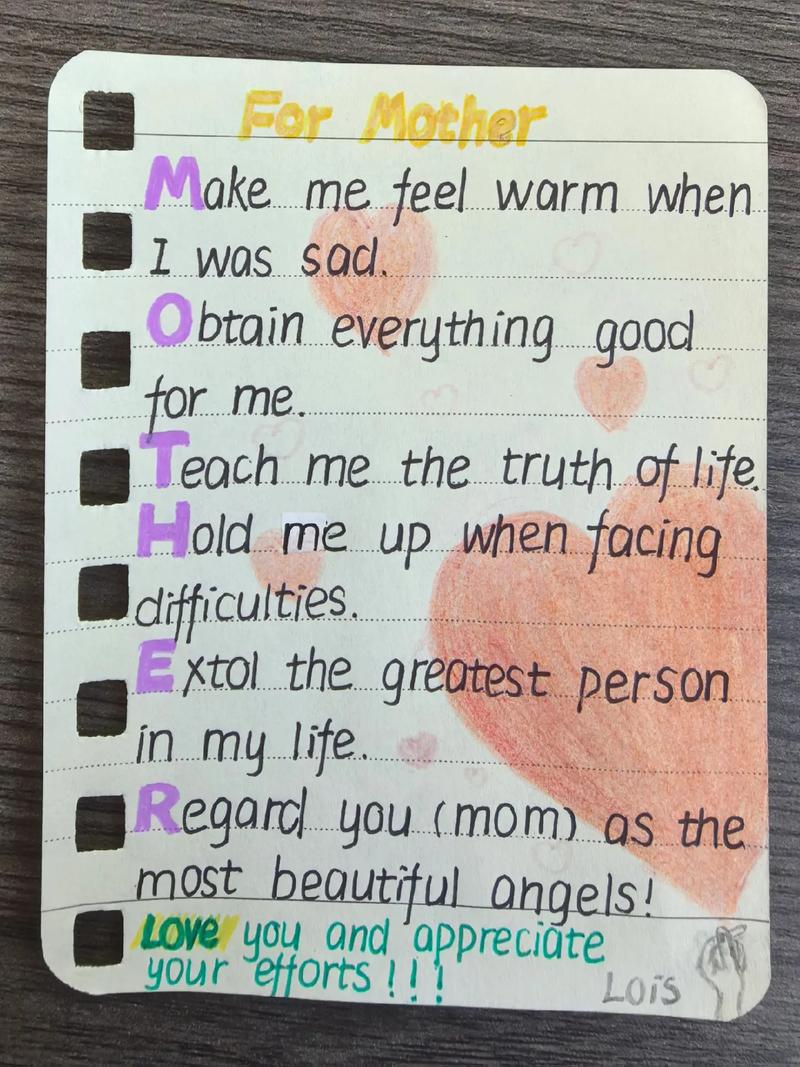 For Mother
Make me feel warm when
I was sad.
Obtain everything good
for me.
Teach me the truth of life.
Hold me up when facing
difficulties.
Extol the greatest person
in my life.
Regard you (mom) as the
most beautiful angels!
LOVE you and appreciate
your efforts!!!
Lois